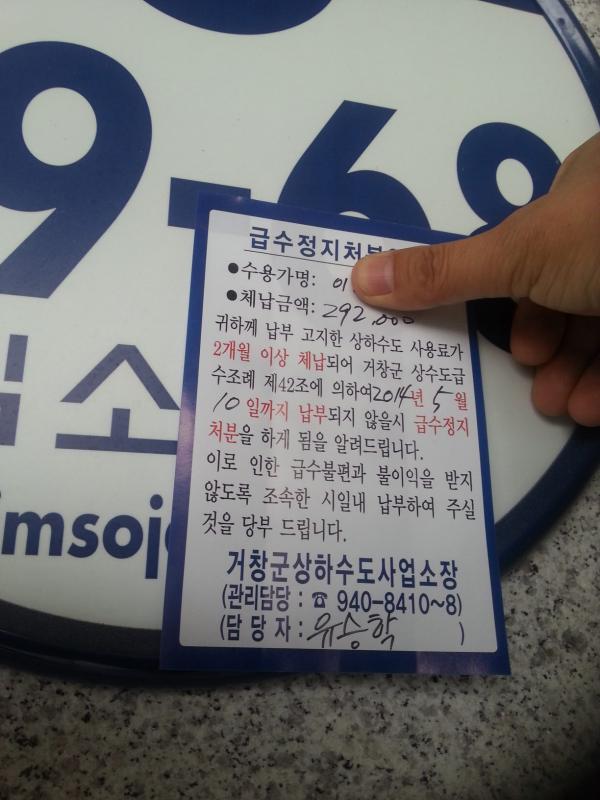 9-68
소
imsoj
급수정지처분
●수용가명: 이
●체납금액: 292,000
귀하께 납부 고지한 상하수도 사용료가
2개월 이상 체납되어 거창군 상수도급
수조례 제42조에 의하여 2014년 5월
10일까지 납부되지 않을시 급수정지
처분을 하게 됨을 알려드립니다.
이로 인한 급수불편과 불이익을 받지
않도록 조속한 시일내 납부하여 주실
것을 당부 드립니다.
거창군상하수도사업소장
(관리담당 : ☎ 940-8410~8)
(담 당 자 : 유승학 )